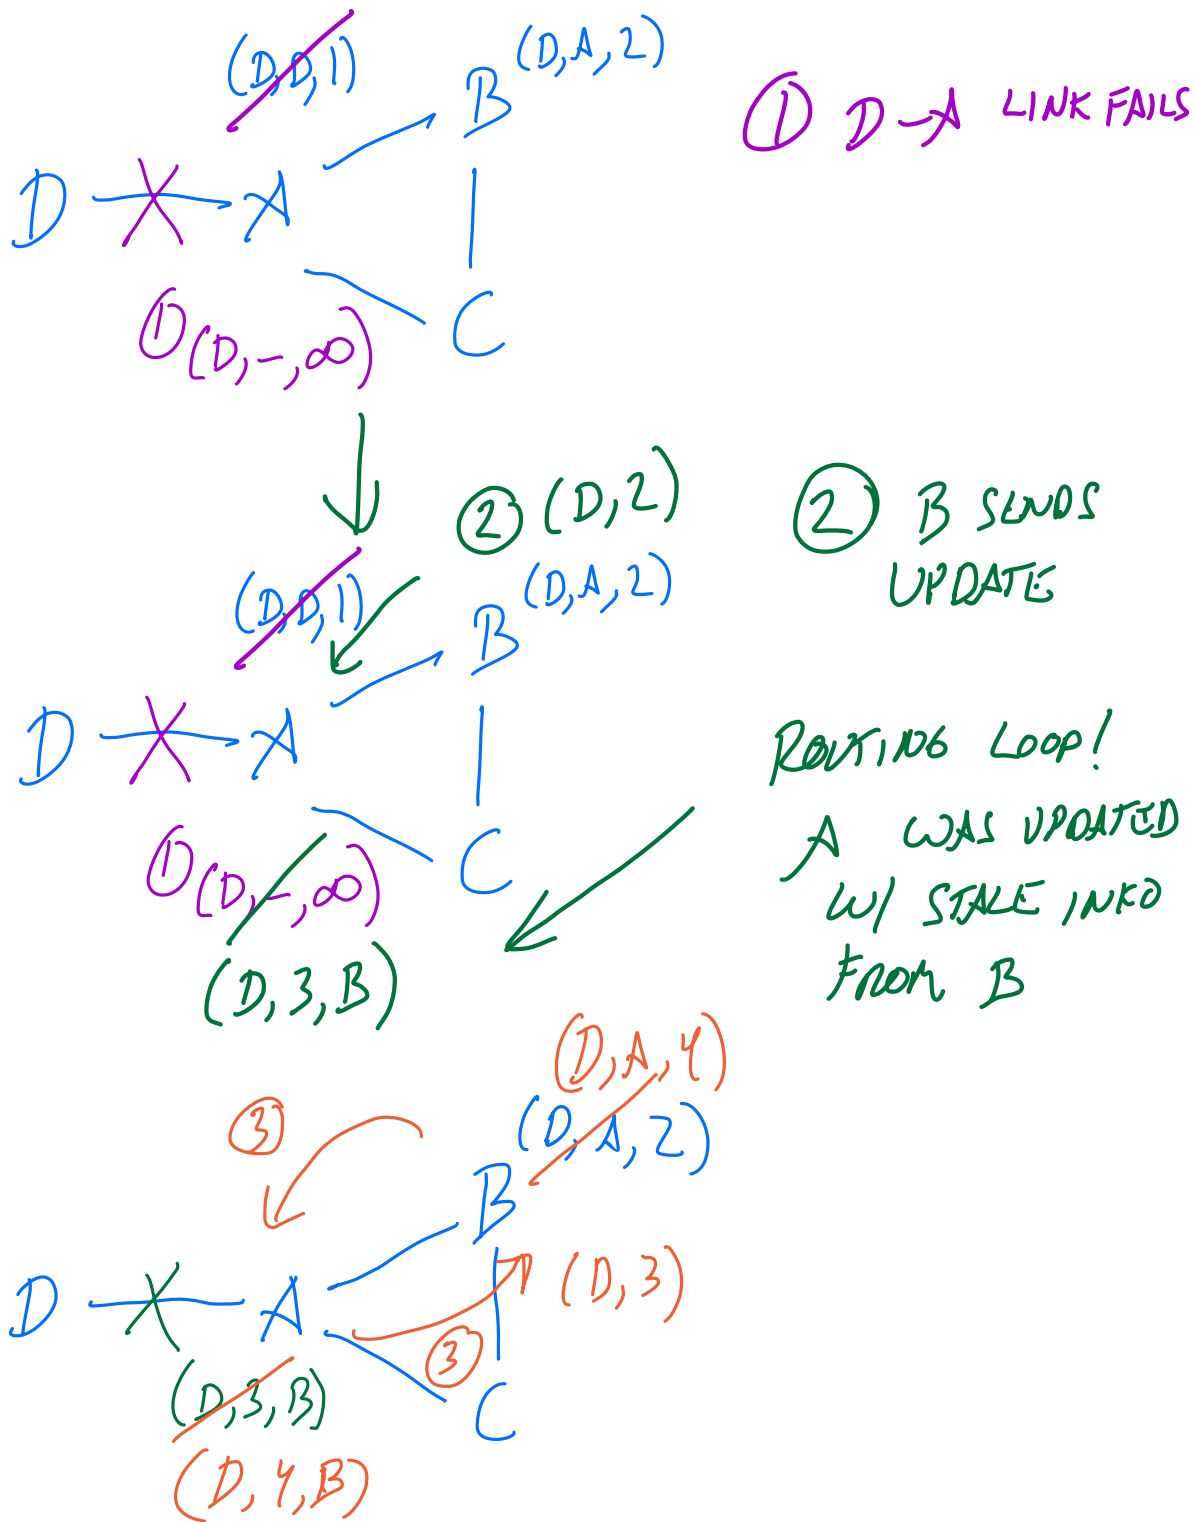 (D,D,1)
B (D,A,2)
① D-A LINK FAILS
D A
① (D,-,∞)
C
② (D,2)
② B SENDS
UPDATE
(D,D,1)
B (D,A,2)
D A
ROUTING LOOP!
A WAS UPDATED
W/ STALE INFO
FROM B
① (D,-,∞)
C
(D,3,B)
(D,A,4)
③
(D,A,2)
B
D A
(D,3)
③
(D,3,B)
C
(D,4,B)